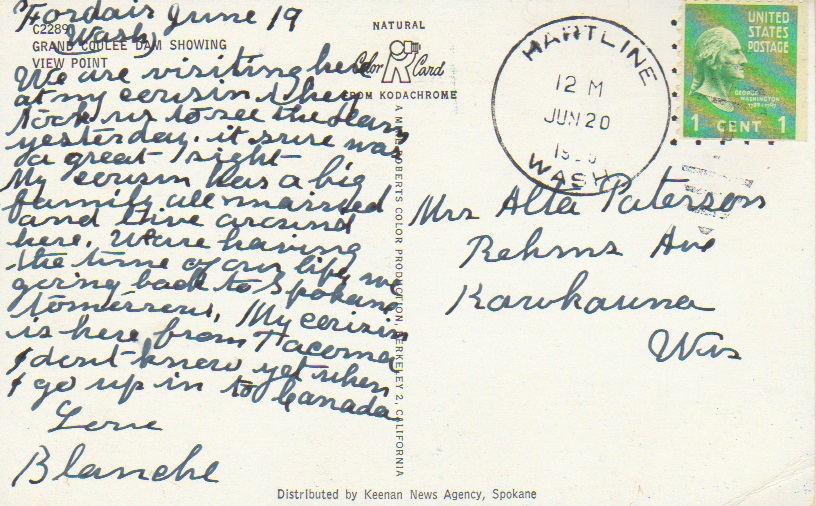 Fordair June 19
(Wash)
C22890
GRAND COULEE DAM SHOWING
VIEW POINT
We are visiting here
at my cousin. they
took us to see the dam
yesterday. it sure was
a great sight
My cousin has a big
family all married
and live around
here. We are having
the time of our life. we
going back to Spokane
tomorrow. My cousin
is here from Tacoma
I dont know yet when
I go up in to Canada
Love
Blanche
NATURAL
Color Card
FROM KODACHROME
A MIKE ROBERTS COLOR PRODUCTION, BERKELEY 2, CALIFORNIA
HARTLINE
12 M
JUN 20
WASH
UNITED
STATES
POSTAGE
GEORGE
WASHINGTON
1 CENT 1
Mrs Alta Paterson
Rehms Ave
Kawkauna
Wis
Distributed by Keenan News Agency, Spokane